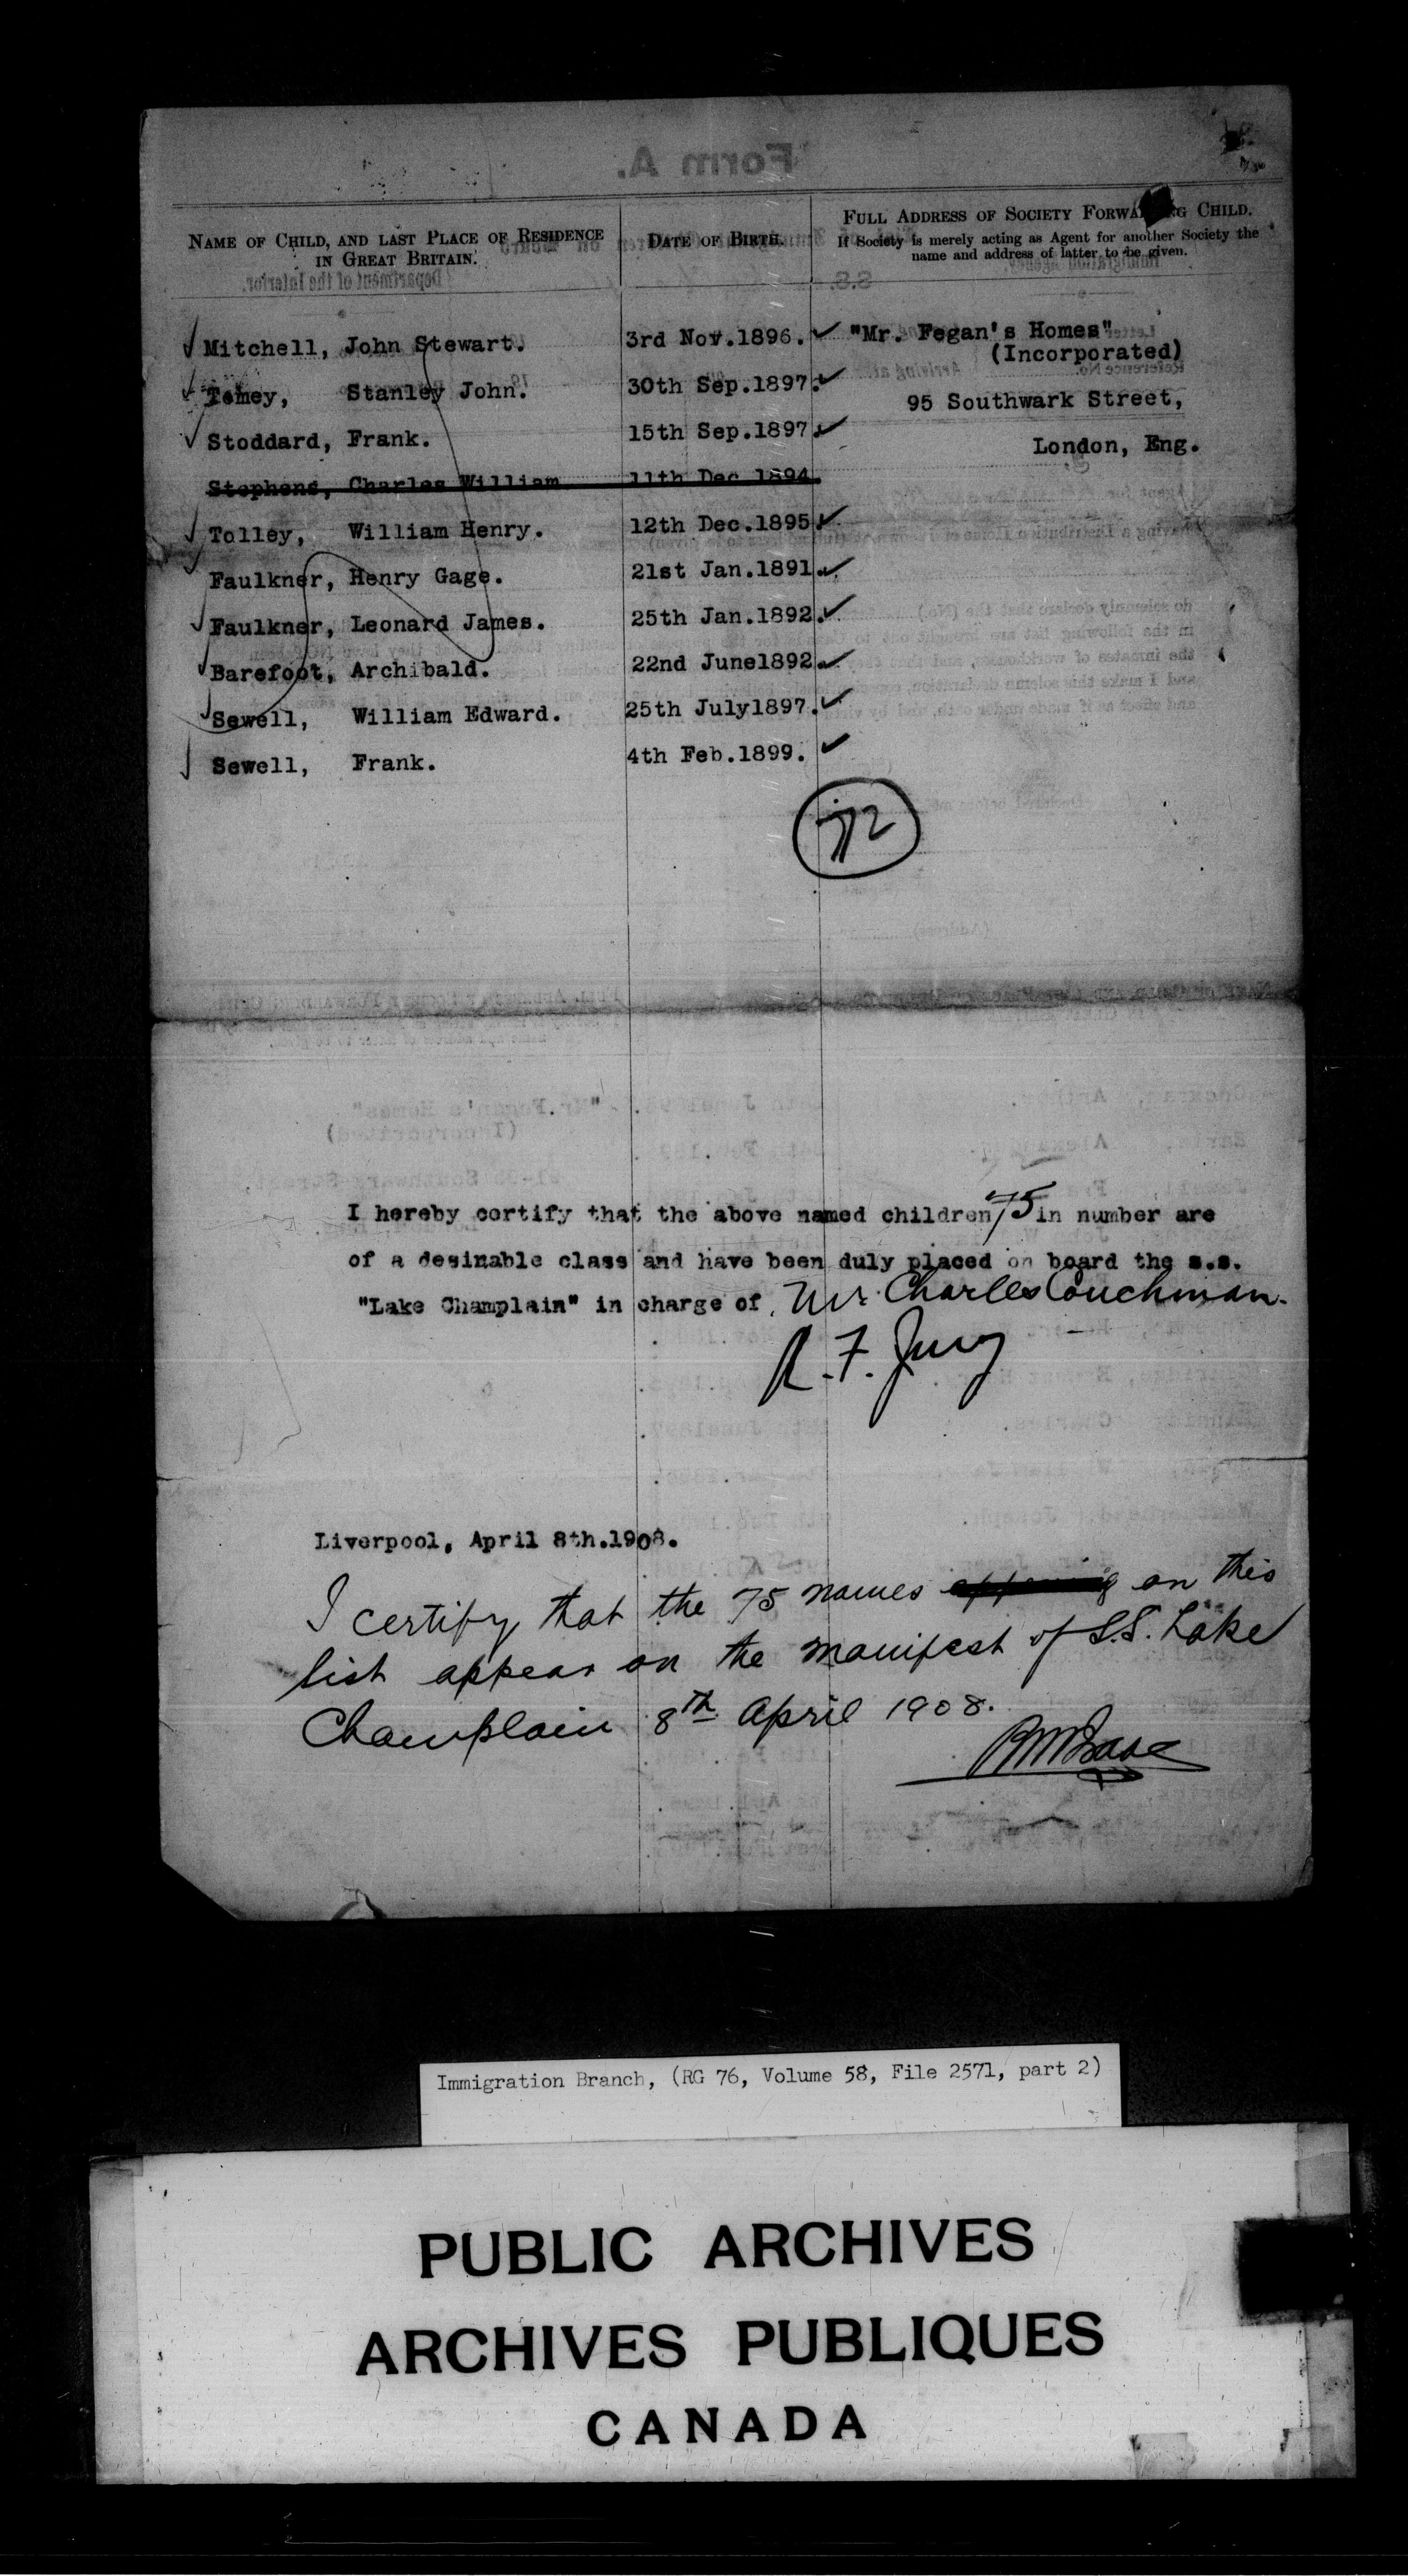 NAME OF CHILD, AND LAST PLACE OF RESIDENCE
IN GREAT BRITAIN.
DATE OF BIRTH.
FULL ADDRESS OF SOCIETY FORWA G CHILD.
If Society is merely acting as Agent for another Society the
name and address of latter to be given.
Mitchell, John Stewart. 3rd Nov.1896. "Mr. Fegan's Homes"
(Incorporated)
Stanley John. 30th Sep.1897.
95 Southwark Street,
Stoddard, Frank. 15th Sep.1897.
London, Eng.
Stephens, Charles William 11th Dec 1894.
Tolley, William Henry. 12th Dec.1895.
Faulkner, Henry Gage. 21st Jan.1891.
Faulkner, Leonard James. 25th Jan.1892.
Barefoot, Archibald. 22nd June1892.
Sewell, William Edward. 25th July1897.
Sewell, Frank. 4th Feb.1899.
I hereby certify that the above named children 75 in number are
of a desinable class and have been duly placed on board the s.s.
"Lake Champlain" in charge of Mr. Charles Couchman.
R. F. Jury
Liverpool, April 8th.1908.
I certify that the 75 names on this
list appear on the manifest of S.S. Lake
Champlain 8th April 1908.
Immigration Branch, (RG 76, Volume 58, File 2571, part 2)
PUBLIC ARCHIVES
ARCHIVES PUBLIQUES
CANADA